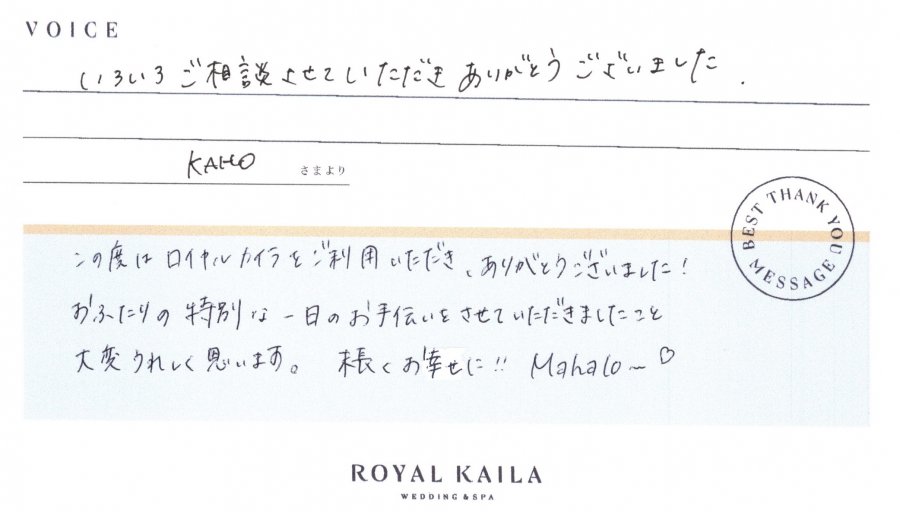 VOICE
いろいろご相談させていただきありがとうございました.
KAHO さまより
BEST THANK YOU MESSAGE
この度はロイヤルカイラをご利用いただき、ありがとうございました!
おふたりの特別な一日のお手伝いをさせていただきましたこと
大変うれしく思います。 末長くお幸せに!! Mahalo~♡
ROYAL KAILA
WEDDING & SPA